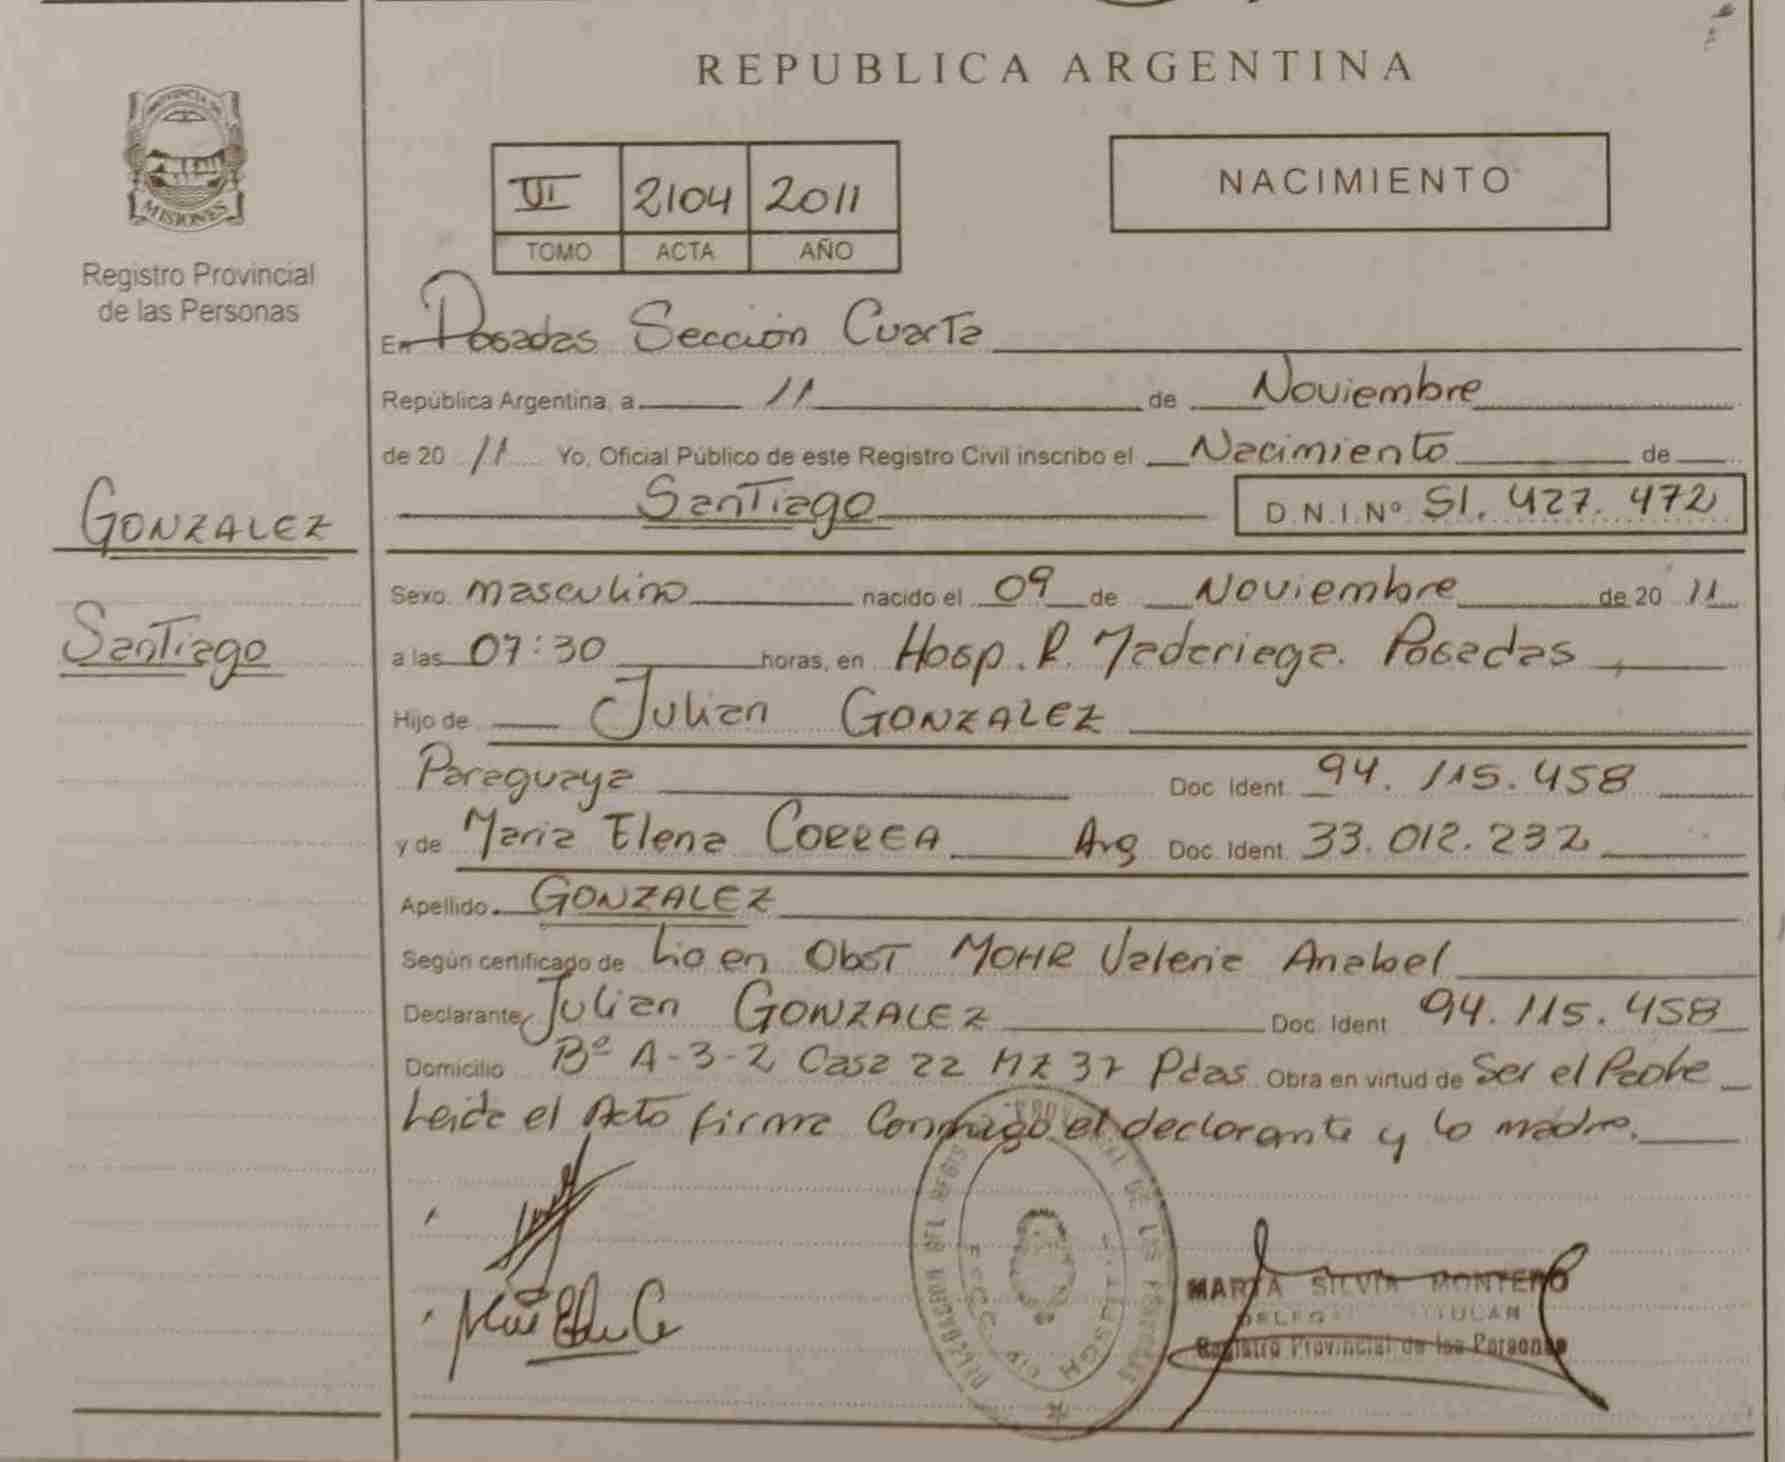 REPUBLICA ARGENTINA
PROVINCIA DE
MISIONES
Registro Provincial
de las Personas
VI 2104 2011
TOMO ACTA AÑO
NACIMIENTO
GONZALEZ
Santiago
En Posadas Sección Cuarta
República Argentina, a 11 de Noviembre
de 20 11 Yo, Oficial Público de este Registro Civil inscribo el Nacimiento de
Santiago D.N.I.Nº 51.427.472
Sexo masculino nacido el 09 de Noviembre de 20 11
a las 07:30 horas, en Hosp. R. Madariaga. Posadas,
Hijo de Julian GONZALEZ
Paraguaya Doc. Ident. 94.115.458
y de Maria Elena CORREA Arg Doc. Ident. 33.012.232
Apellido GONZALEZ
Según certificado de Lic en Obst MOHR Valeria Anabel
Declarante Julian GONZALEZ Doc. Ident. 94.115.458
Domicilio Bº A-3-2 Casa 22 MZ 37 Pdas Obra en virtud de Ser el Padre
Leida el Acto firma Conmigo el declarante y la madre.
MARTA SILVIA MONTERO
TITULAR
Registro Provincial de las Personas